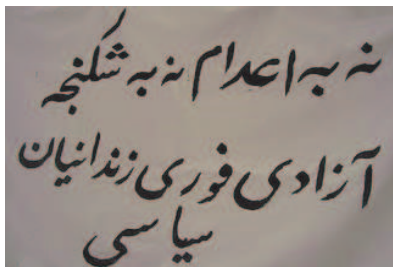 نه به اعدام نه به شکنجه
آزادی فوری زندانیان
سیاسی